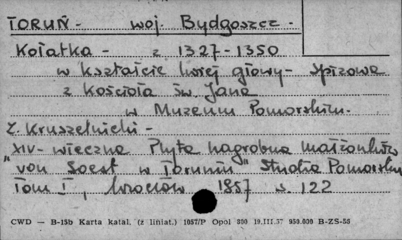 TORUŃ - woj. Bydgoszcz -
Kołatka - z 1327-1350
w kształcie lwiej głowy - spiżowa
z Kościoła św. Jana
w Muzeum Pomorskim.
Z. Kruszelnicki -
"XIV- wieczna Płyta nagrobna małżonków
von Soest w Toruniu" Studia Pomorskie
Tom I, Wrocław 1957 s. 122
CWD — B-15b Karta katal. (z liniat.) 1087/P Opol 350 19.III.57 950.000 B-ZS-55